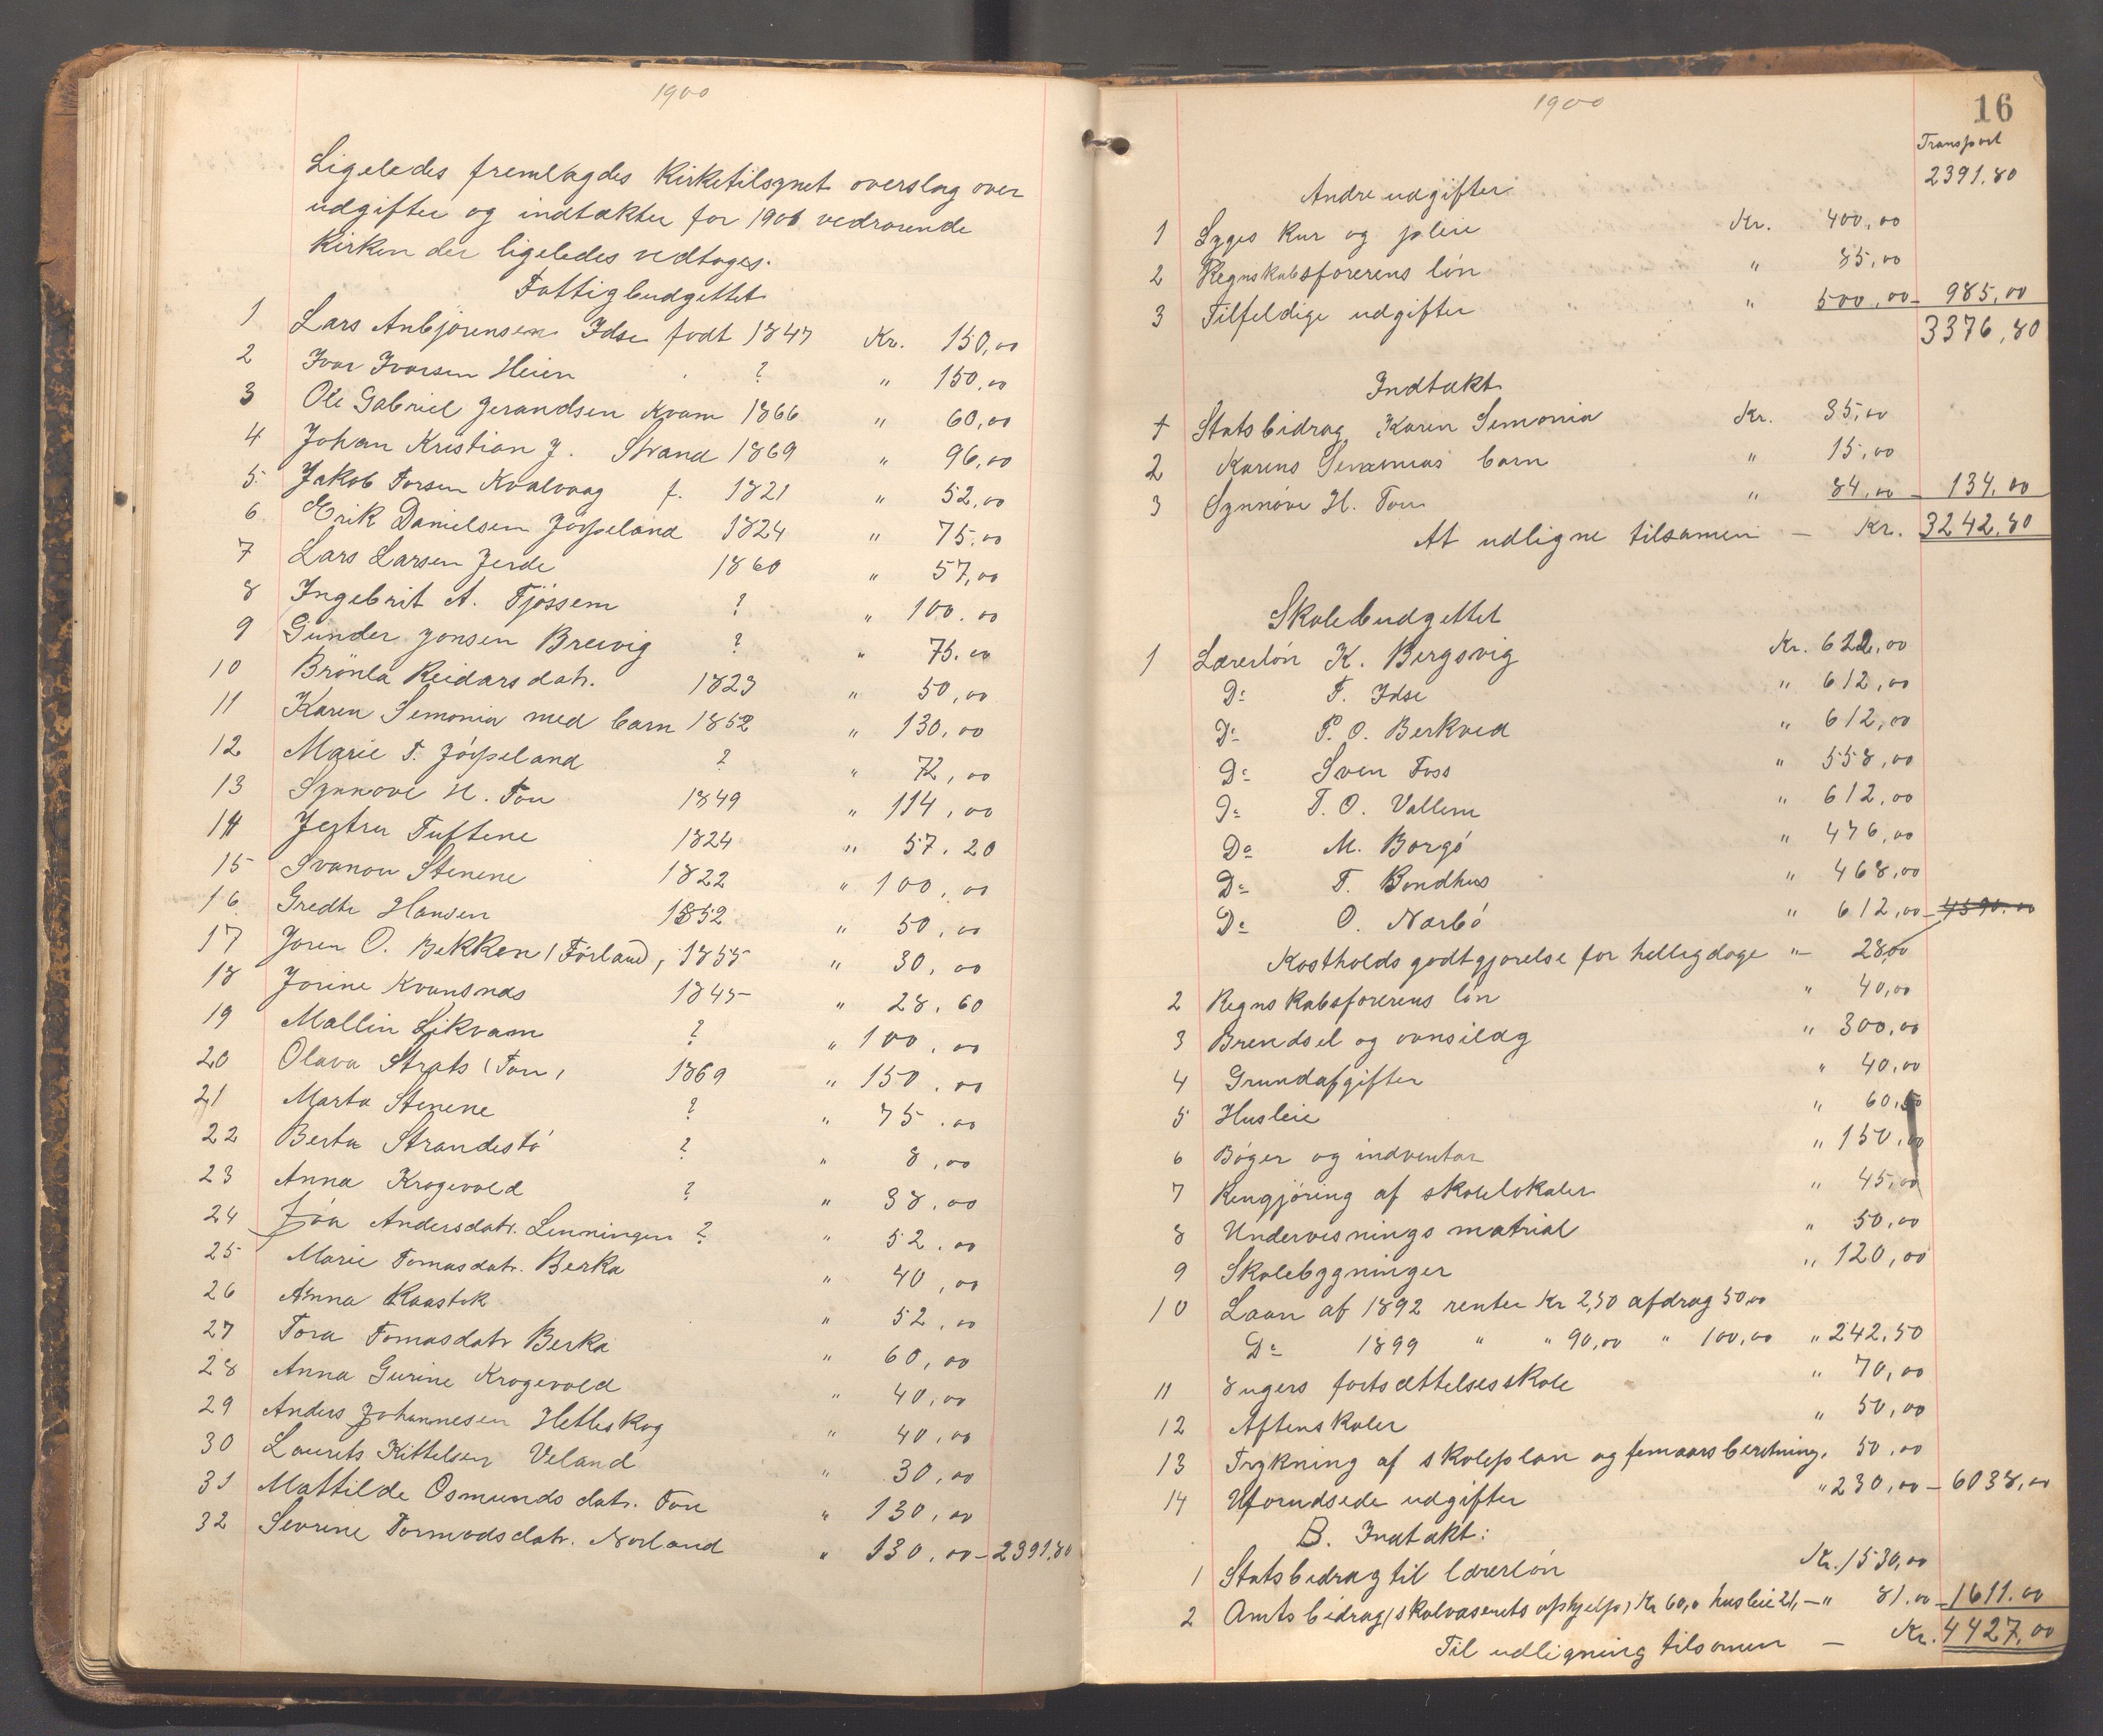 1900
Ligeledes fremlagdes Kirketilsynet overslag over
udgifter og indtækter for 1901 vedrørende
Kirken der ligeledes vedtoges.
Fattigbudgettet
1 Lars Anbjørensen Idse født 1847 Kr. 150,00
2 Ivar Ivarsen Heien ? " 150,00
3 Ole Gabriel Jerandsen Kvam 1866 " 60,00
4 Johan Kristian J. Strand 1869 " 96,00
5 Jakob Torsen Kvalvaag f. 1821 " 52,00
6 Erik Danielsen Jøspeland 1824 " 75,00
7 Lars Larsen Jerde 1860 " 57,00
8 Ingebrit A. Tjøssem ? " 100.00
9 Gunder Jonsen Breivig ? " 75.00
10 Brönla Reidarsdatr. 1823 " 50,00
11 Karen Semonia med barn 1852 " 130,00
12 Marie T. Jøspeland ? " 72,00
13 Synnøve H. Tou 1849 " 114,00
14 Jertru Tuftene 1824 " 57.20
15 Svanou Stenene 1822 " 100,00
16 Gredte Hansen 1852 " 50,00
17 Joren O. Bekken (Førland) 1855 " 30,00
18 Jorine Kvansnæs 1845 " 28,60
19 Mallin Likvam ? " 100.00
20 Olava Strats (Tou) 1869 " 150.00
21 Marta Stenene ? " 75.00
22 Berta Strandestø ? " 8,00
23 Anna Krogevold ? " 38.00
24 Andersdatr. Lenningen ? " 52.00
25 Marie Tomasdatr. Berka " 40,00
26 Anna Raastek " 52,00
27 Tora Tomasdatr Berka " 60,00
28 Anna Gurine Krogevold " 40,00
29 Anders Johannesen Hetleskog " 40,00
30 Laurits Kittelsen Veland " 30,00
31 Mattilde Osmundsdatr. Tou " 130,00
32 Sevrine Tormodsdatr. Norland " 130.00 – 2391.80
1900
16
Transport
2391.80
Andre udgifter
1 Syges kur og pleie Kr. 400,00
2 Regnskabsførerens løn " 85,00
3 Tilfeldige udgifter " 500,00 – 985,00
3376,80
Indtækt
1 Statsbidrag Karen Semonia Kr. 35,00
2 Karens Semonias barn " 15,00
3 Synnøve H. Tou " 84,00 – 134,00
At udligne tilsamen – Kr. 3242,80
Skolebudgettet
1 Lærerløn K. Bergsvig Kr. 622,00
Do T. Idse " 612,00
Do P. O. Berkved " 612,00
Do Sven Foss " 558,00
Do T. O. Vallem " 612,00
Do M. Borgø " 476,00
Do T. Bondhus " 468,00
Do O. Narbø " 612,00 – 4590.00
Kostholdsgodtgjørelse for helligdage " 28,00
2 Regnskabsførerens løn " 40,00
3 Brendsel og ovnsilæg " 300,00
4 Grundafgifter " 40,00
5 Husleie " 60,50
6 Bøger og indventar " 150,00
7 Rengjøring af skolelokaler " 45,00
8 Undervisnings matrial " 50,00
9 Skolebygninger " 120,00
10 Laan af 1892 renter Kr 2,50 afdrag 50,00
Do 1899 " " 90,00 " 100,00 " 242,50
11 8 ugers fortsættelsesskole " 70,00
12 Aftenskoler " 50,00
13 Trykning af skoleplan og femaarsberetning. 50,00
14 Uforudsede udgifter " 230,00 – 6038,00
B. Indtækt:
1 Statsbidrag til lærerløn Kr. 1530,00
2 Amtsbidrag (skolvæsenets ophjelp) Kr 60,0 husleie 21,– " 81.00 – 1611.00
Til udligning tilsamen – Kr. 4427,00